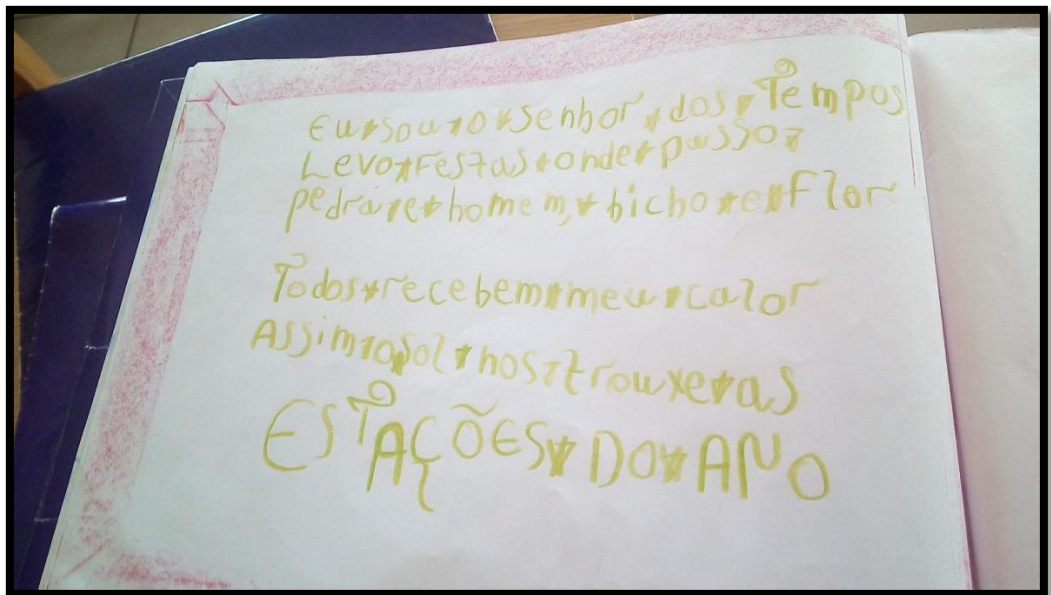 Eu sou o senhor dos Tempos
Levo festas onde passo
pedra e homem, bicho e Flor
Todos recebem meu calor
Assim o sol nos trouxe as
ESTAÇÕES DO ANO